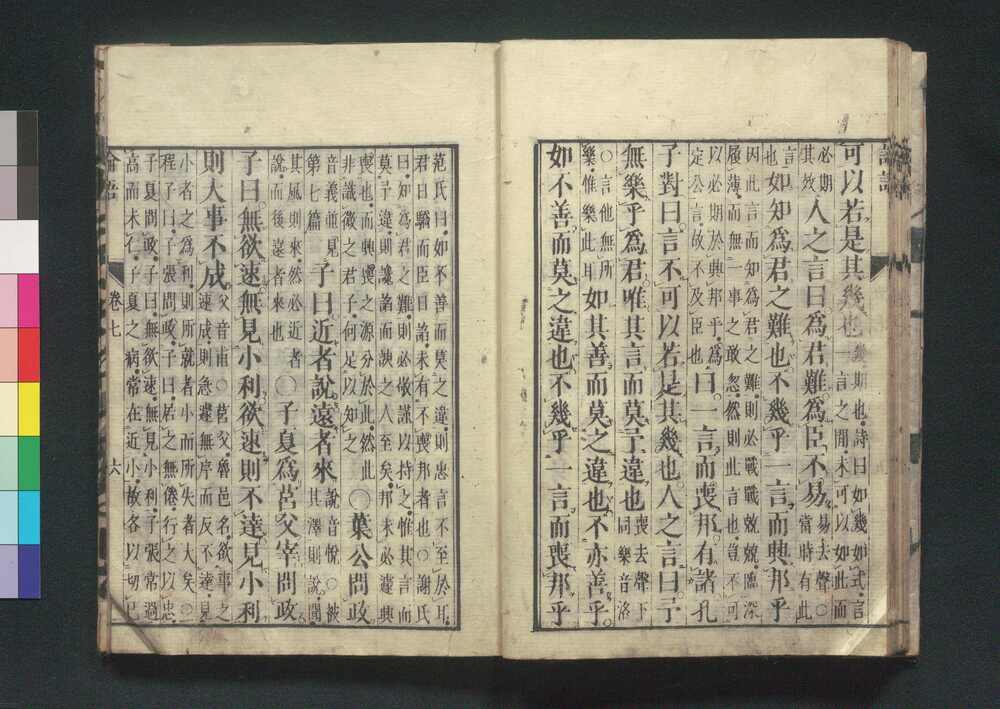 論語
可以若是其幾也
幾期也詩曰如幾如式言
一言之間未可以如此而
必期
其效
人之言曰爲君難爲臣不易
易去聲○
當時有此
言
也
如知爲君之難也不幾乎一言而興邦乎
因此言而知爲君之難則必戰戰兢兢臨深
履薄而無一事之敢忽然則此言也豈不可
以必期於興邦乎爲
定公言故不及臣也
曰一言而喪邦有諸孔
子對曰言不可以若是其幾也人之言曰予
無樂乎爲君唯其言而莫予違也
喪去聲下
同樂音洛
○言他無所
樂惟樂此耳
如其善而莫之違也不亦善乎
如不善而莫之違也不幾乎一言而喪邦乎
范氏曰如不善而莫之違則忠言不至於耳
君日驕而臣日諂未有不喪邦者也○謝氏
曰知爲君之難則必敬謹以持之惟其言而
莫予違則讒諂面諛之人至矣邦未必遽興
喪也而興喪之源分於此然此
非識微之君子何足以知之
○葉公問政
音義並見
第七篇
子曰近者說遠者來
說音悅○被
其澤則說聞
其風則來然必近者
說而後遠者來也
○子夏爲莒父宰問政
子曰無欲速無見小利欲速則不達見小利
則大事不成
父音甫○莒父魯邑名欲事之
速成則急遽無序而反不達見
小者之爲利則所就者小而所失者大矣○
程子曰子張問政子曰居之無倦行之以忠
子夏問政子曰無欲速無見小利子張常過
高而未仁子夏之病常在近小故各以切己
論語
卷七
六